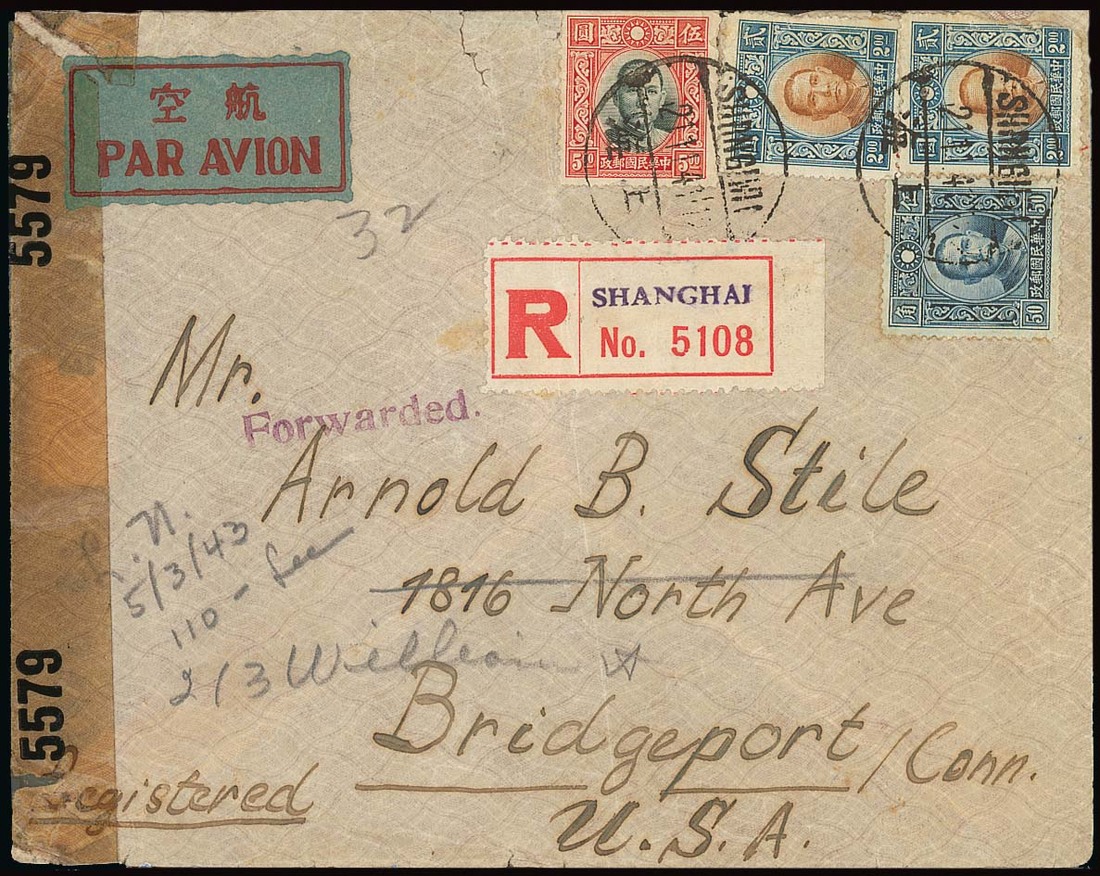 空 航
PAR AVION
圓 伍
5.00 政郵國民華中 5.00
貳
2.00
中華民國郵政
2.00
貳
2.00
中華民國郵政
2.00
SHANGHAI
SHANGHAI
上
50
中華民國郵政
50
伍
角
32
R
SHANGHAI
No. 5108
5579
Mr.
Forwarded.
Arnold B. Stile
N.
5/3/43
110 - Lee
1816 North Ave
213 William
5579
Bridgeport / Conn.
Registered
U.S.A.